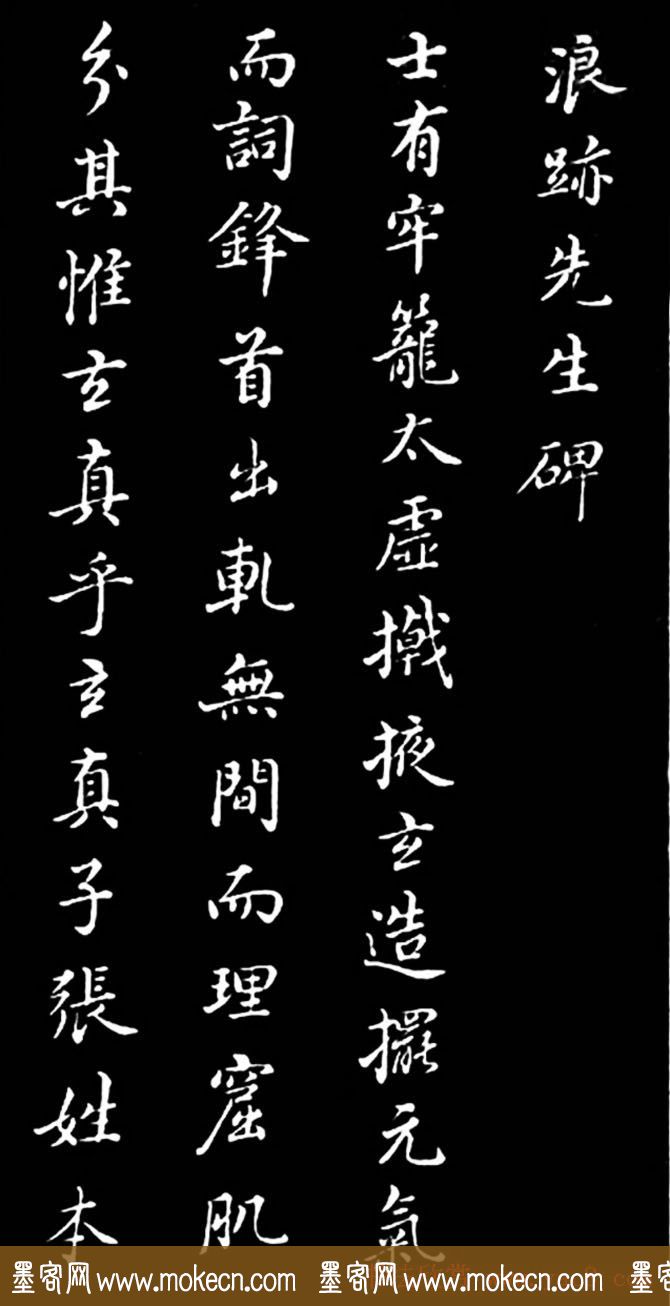 浪跡先生碑
士有牢籠太虛撠掖玄造擺元氣
而詞鋒首出軋無間而理窟肌
分其惟玄真乎玄真子張姓本
墨客网 www.mokecn.com 墨客网 www.mokecn.com 墨客